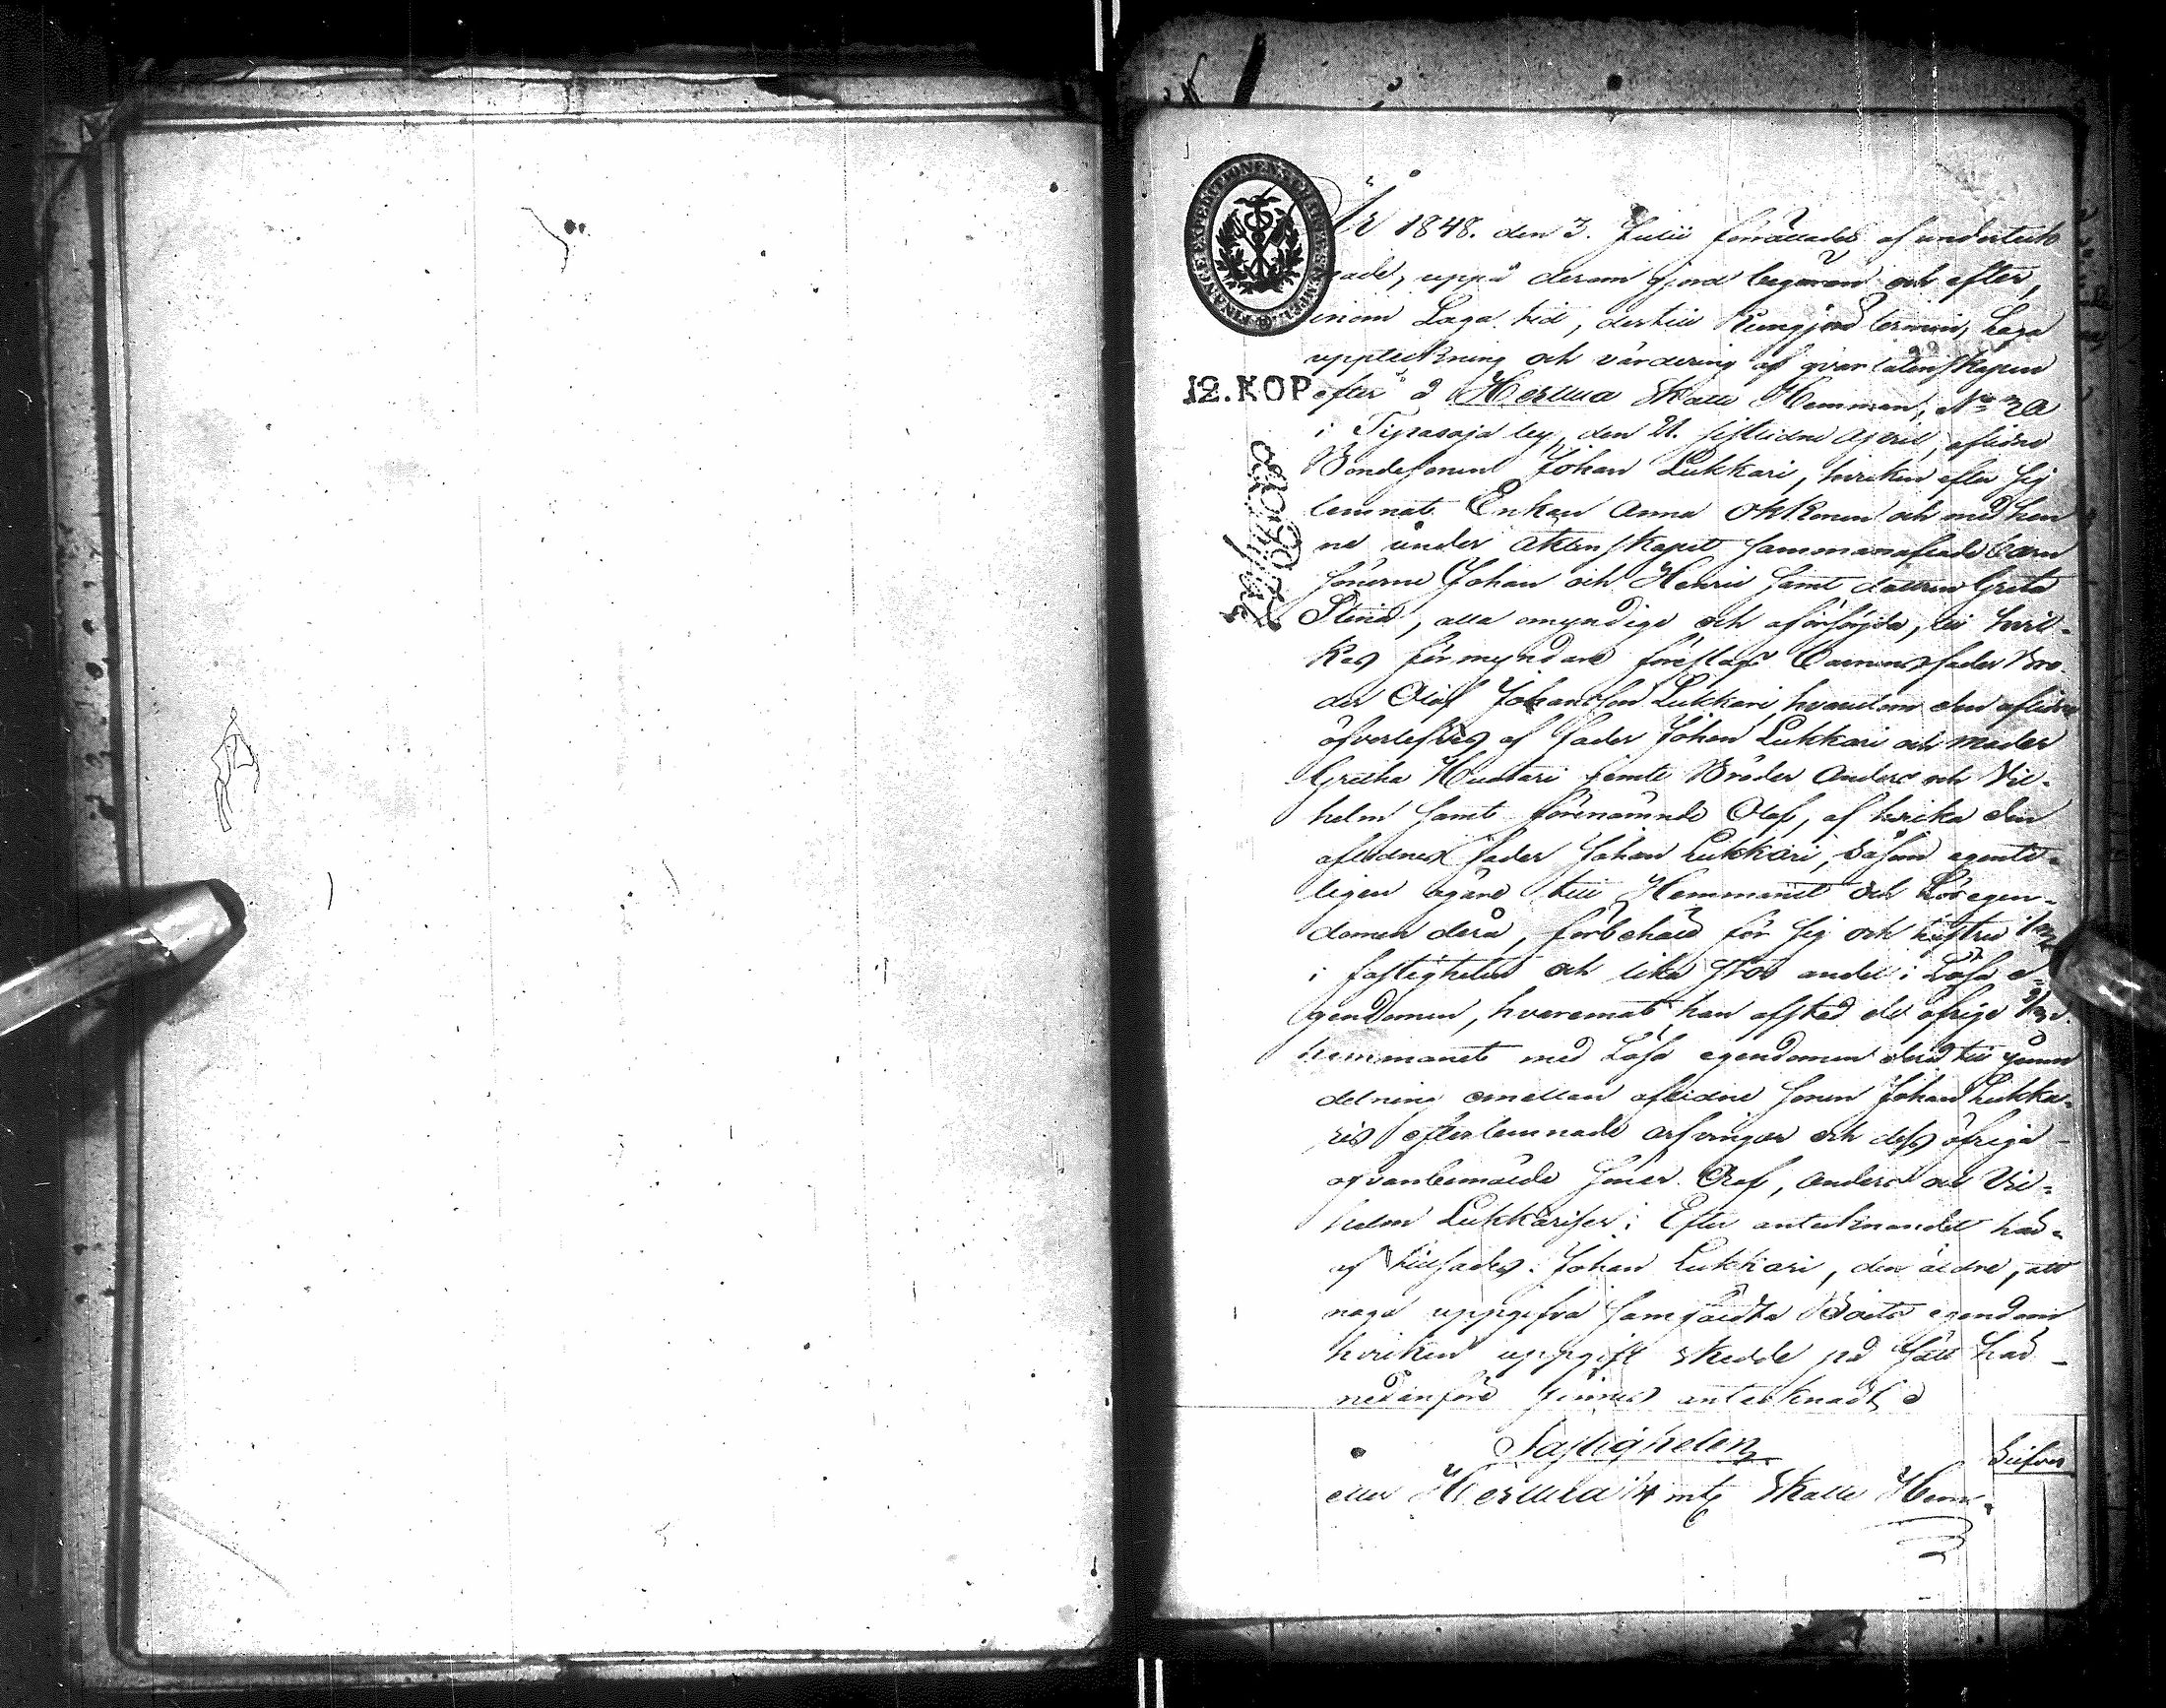 FINANCE EXPEDITIONENS CHARTÆ STÄMPEL
År 1848. den 3. Julii förrättades af underteck
nade, uppå derom gjord begäran och efter,
inom Laga tid, dertill kungjord termin, Laga
uppteckning och värdering af qvarlåtenskapen
12. KOP
efter å Hermla Skatte Hemman, No 3a
i Tyrsasoja by, den 21. sistledne April, aflidne
Bondesonen Johan Lukkari, hvilken efter sig
lemnat Enkan Anna Okkonen och med hen
ne under äktenskapet sammanaflade barn
sönerne Johan och Henric samt dottren Greta
Stina, alla omyndige och oförsörjda, till hvil-
kas förmyndare föreslogs Barnens fader Bro
der Olof Johansson Lukkari, hvarutom den aflidne
öfverlefves af fader Johan Lukkari och moder
Gretha Huotari jemte Bröder Anders och Vil-
helm samt förenämnde Olof, af hvilka den
aflidnes fader Johan Lukkari, såsom egent-
ligen ägare till Hemmanet och Lösegen-
domen derå, förbehöll för sig och hustru 1/3
i fastigheten och lika stor andel i Lösa e-
gendomen, hvaremot han afstod de öfrige 2/3 i
hemmanet med Lösa egendomen derå till jemn
delning emellan aflidne sonen Johan Lukka-
ris efterlemnade arfvingar och dess öfriga
ofvanbemälde söner Olof, Anders och Vil-
helm Lukkariser. Efter antecknandet häraf
tillsades Johan Lukkari, den äldre, att
noga uppgifva samfäldta Boets egendom
hvilken uppgift skedde på sätt här
nedanföre finnes antecknadt
Fastigheten
Silfver
eller Hermla 1/4 mtl Skatte Hem-